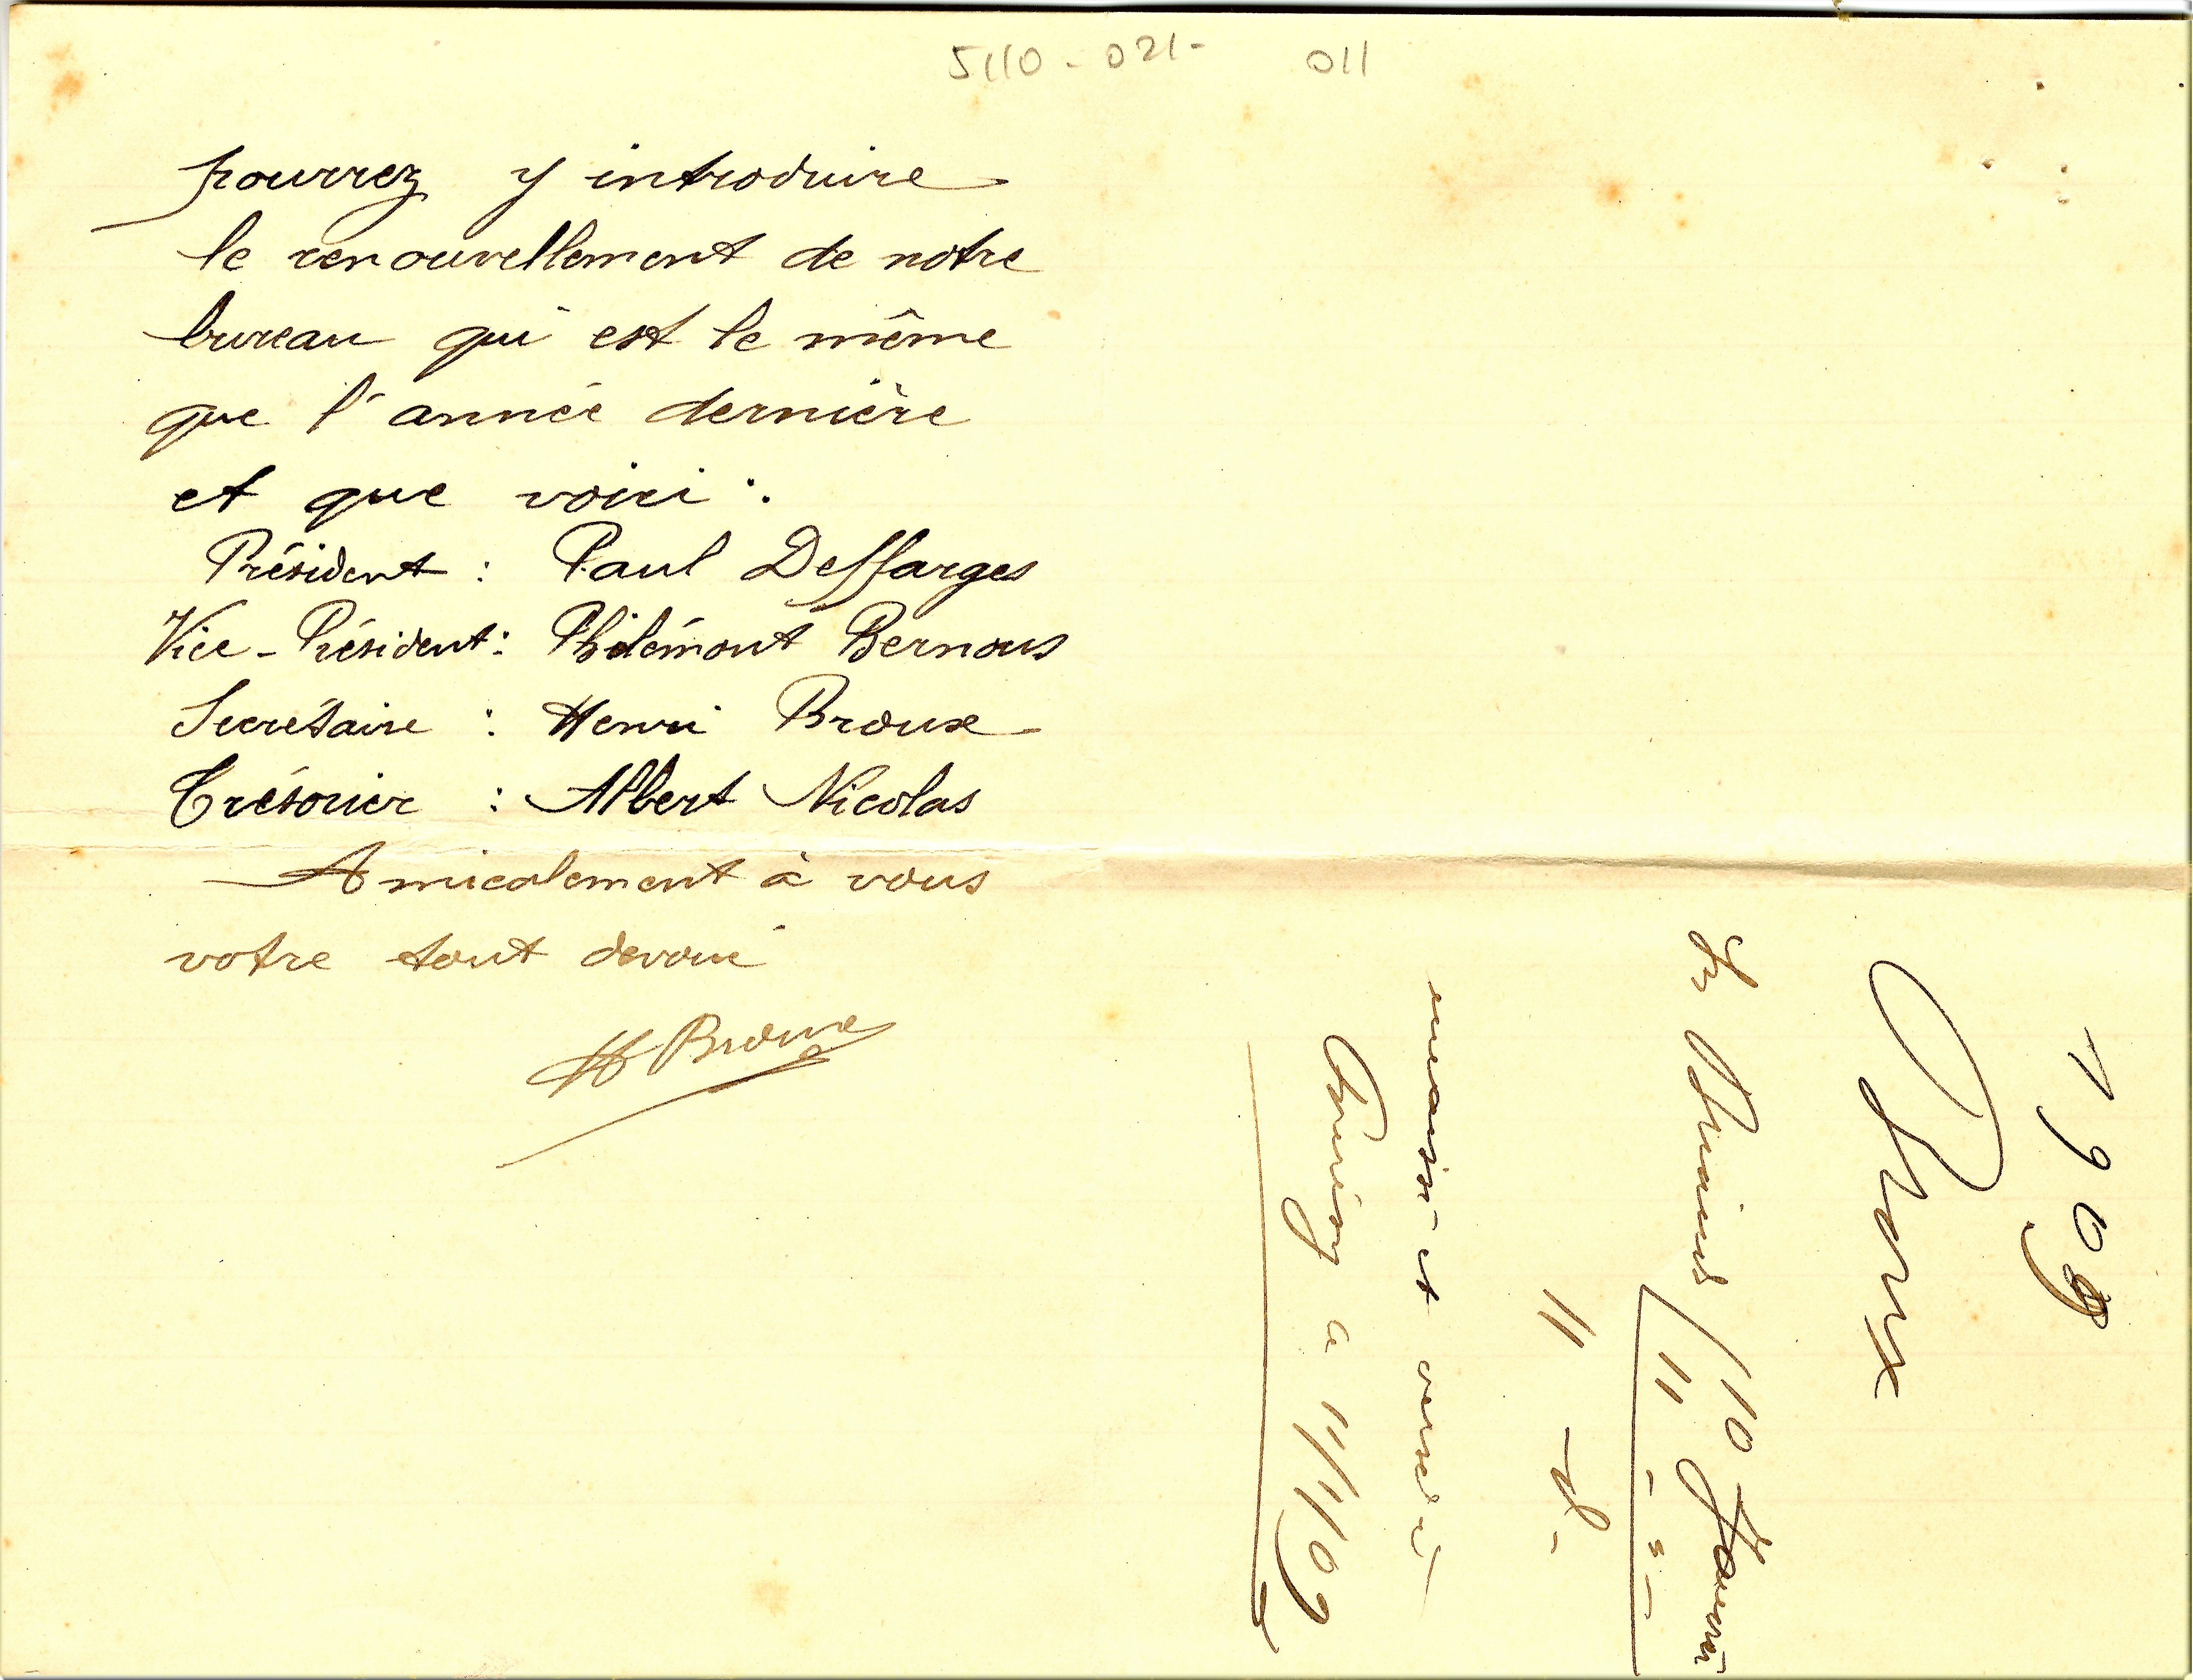 5110 - 021 - 011
pourrez y introduire
le renouvellement de notre
bureau qui est le même
que l'année dernière
et que voici :
Président : Paul Deffarges
Vice-Président : Philémont Bernous
Secrétaire : Henri Broux
Trésorier : Albert Nicolas
Amicalement à vous
votre tout dévoué
H Broux
1909
Broux
10 Janvier
11 - " -
11 - d -
et
a 11/1/09